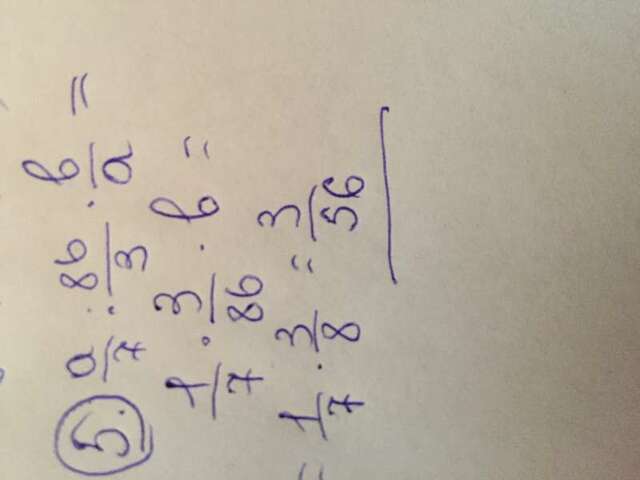 5. a/7 : 8b/3 · b/a =
1/7 · 3/8b · b =
= 1/7 · 3/8 = 3/56